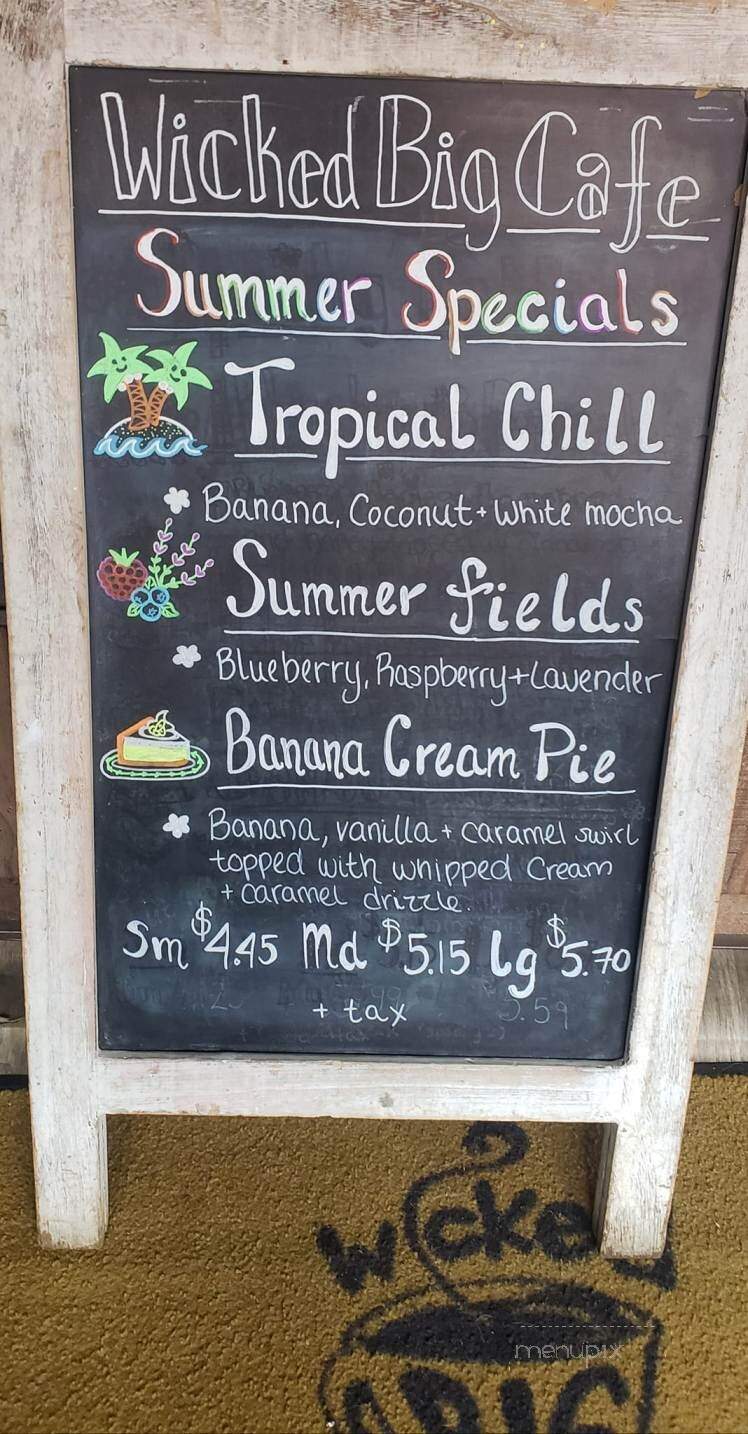 Wicked Big Cafe
Summer Specials
Tropical Chill
Banana, Coconut + White mocha
Summer fields
Blueberry, Raspberry + Lavender
Banana Cream Pie
Banana, vanilla + caramel swirl
topped with whipped Cream
+ caramel drizzle.
Sm $4.45 Md $5.15 lg $5.70
+ tax
5.59
Wicked
BIG
menupix